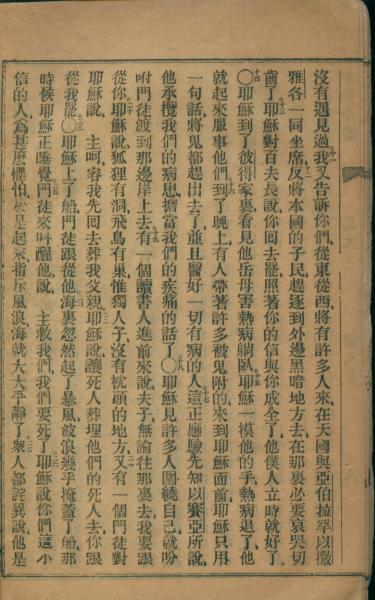 沒有遇見過我又告訴你們從東從西將有許多人來在天國與亞伯拉罕以撒
雅各一同坐席反將本國的子民趕逐到外邊黑暗地方去在那裏必要哀哭切
齒了耶穌對百夫長說你回去罷照著你的信與你成全了他僕人立時就好了
〇耶穌到了彼得家裏看見他岳母害熱病躺臥耶穌一摸他的手熱病退了他
就起來服事他們到了晚上有人帶著許多被鬼附的來到耶穌面前耶穌只用
一句話將鬼都趕出去了並且醫好一切有病的人這正應驗先知以賽亞所說
他承攬我們的病患擔當我們的疾痛的話了〇耶穌見許多人圍繞自己就吩
咐門徒渡到那邊岸上去有一個讀書人進前來說夫子無論往那裏去我要跟
從你耶穌說狐狸有洞飛鳥有巢惟獨人子沒有枕頭的地方又有一個門徒對
耶穌說主呵容我先回去葬我父親耶穌說讓死人葬埋他們的死人去你跟
從我罷〇耶穌上了船門徒跟從他海裏忽然起了暴風波浪幾乎掩蓋了船那
時候耶穌正睡覺門徒來叫醒他說主救我們我們要死了耶穌說你們這小
信的人爲甚麼懼怕於是起來指斥風浪海就大大平靜了衆人都詫異說他是